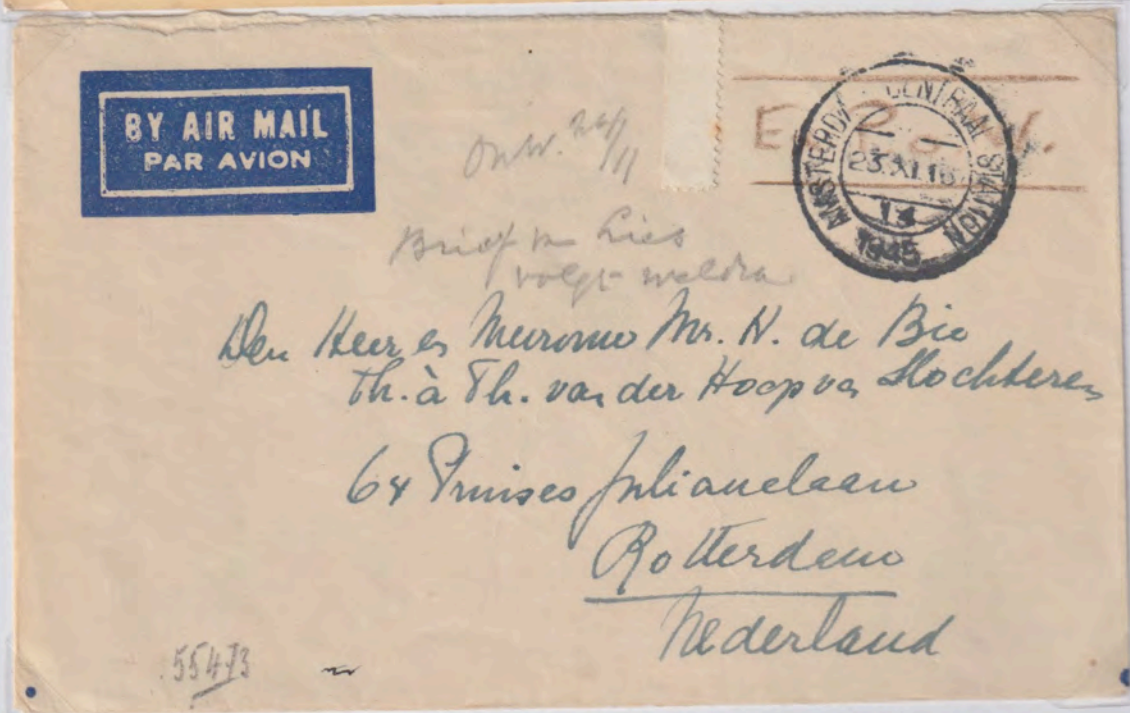 BY AIR MAIL
PAR AVION
Ontv. 26/11
E.P.
AMSTERDAM CENTRAAL STATION
23.XI.16
1945
Brief van Lies
volgt weldra
Den Heer en Mevrouw Mr. H. de Bie
Th. à Th. van der Hoop van Slochteren
64 Prinses Julianalaan
Rotterdam
Nederland
55473